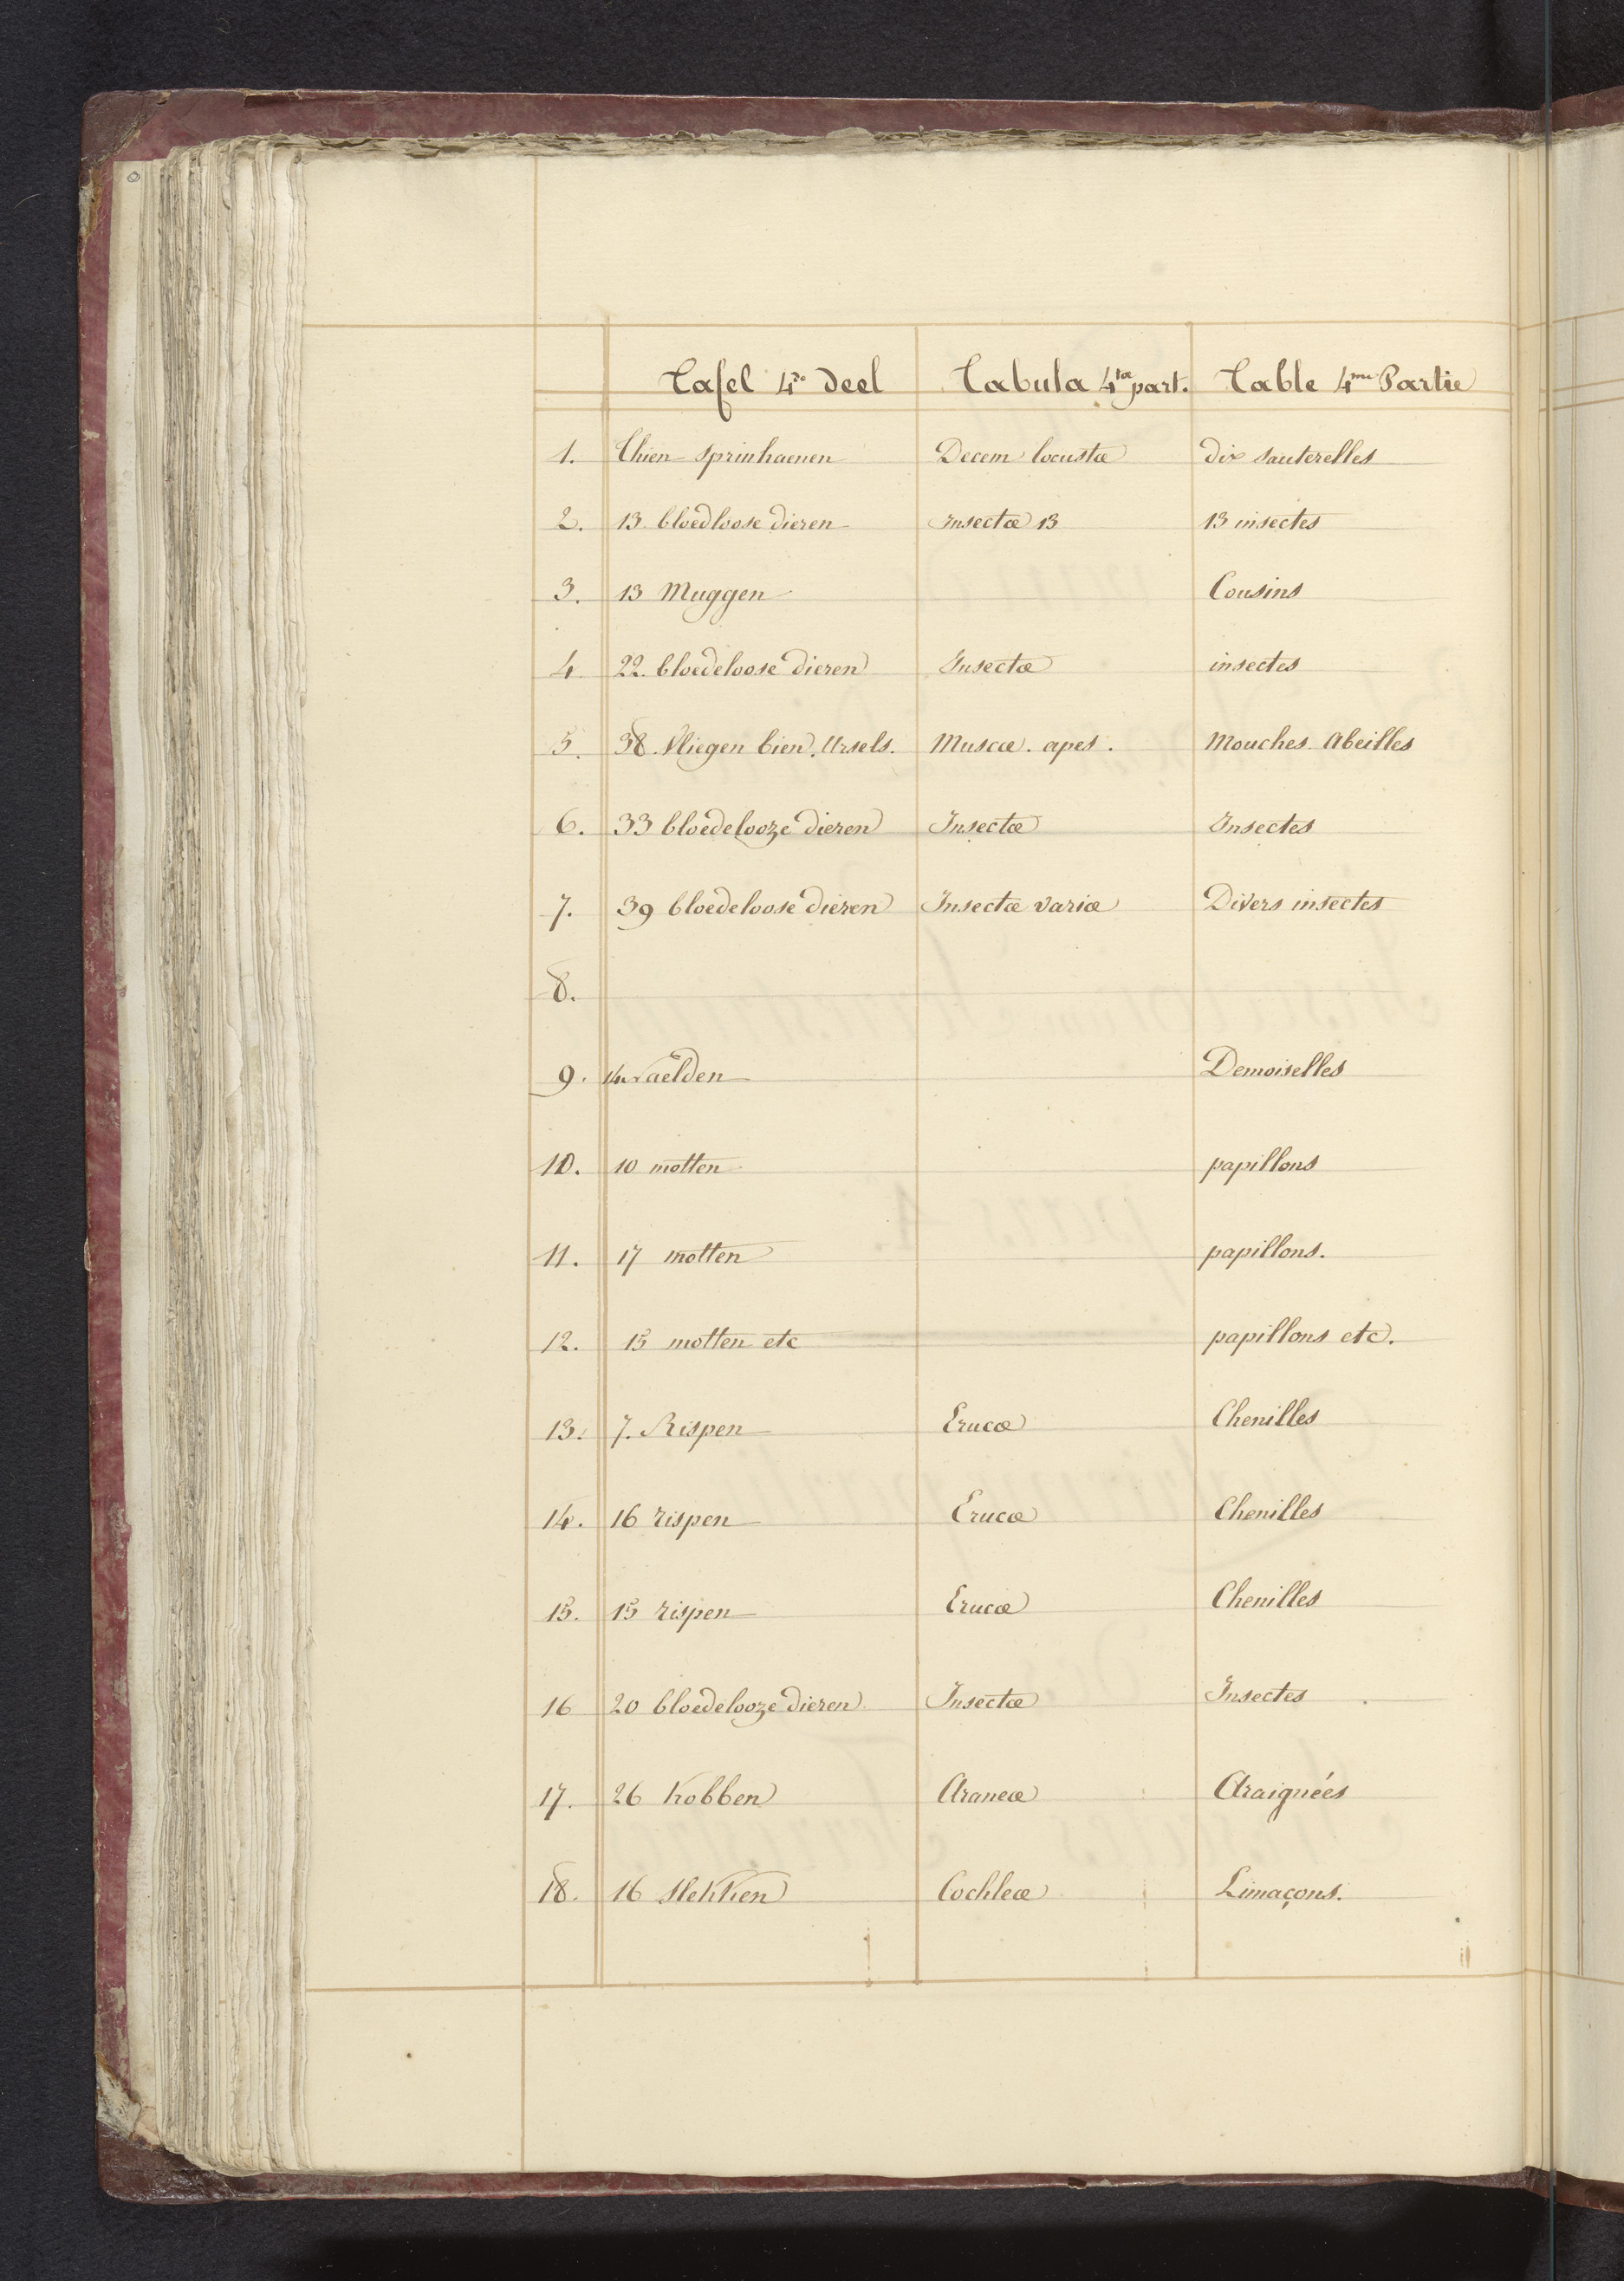 Tafel 4de deel Tabula 4ta part. Table 4me Partie
1. Thien sprinhaenen Decem locustæ dix sauterelles
2. 13. bloedloose dieren Insectæ 13 13 insectes
3. 13 Muggen Cousins
4 22. bloedeloose dieren Insectæ insectes
5. 38. Vliegen bien. Ursels. Muscæ. apes. Mouches. Abeilles
6. 33 bloedelooze dieren Insectæ Insectes
7. 39 bloedeloose dieren Insectæ variæ Divers insectes
8.
9. 14 Naelden Demoiselles
10. 10 motten papillons
11. 17 motten papillons.
12. 15 motten etc papillons etc.
13. 7. Rispen Erucæ Chenilles
14. 16 rispen Erucæ Chenilles
15. 15 rispen Erucæ Chenilles
16 20 bloedelooze dieren Insectæ Insectes
17. 26 Kobben Araneæ Araignées
18. 16 slekken Cochleæ Limaçons.